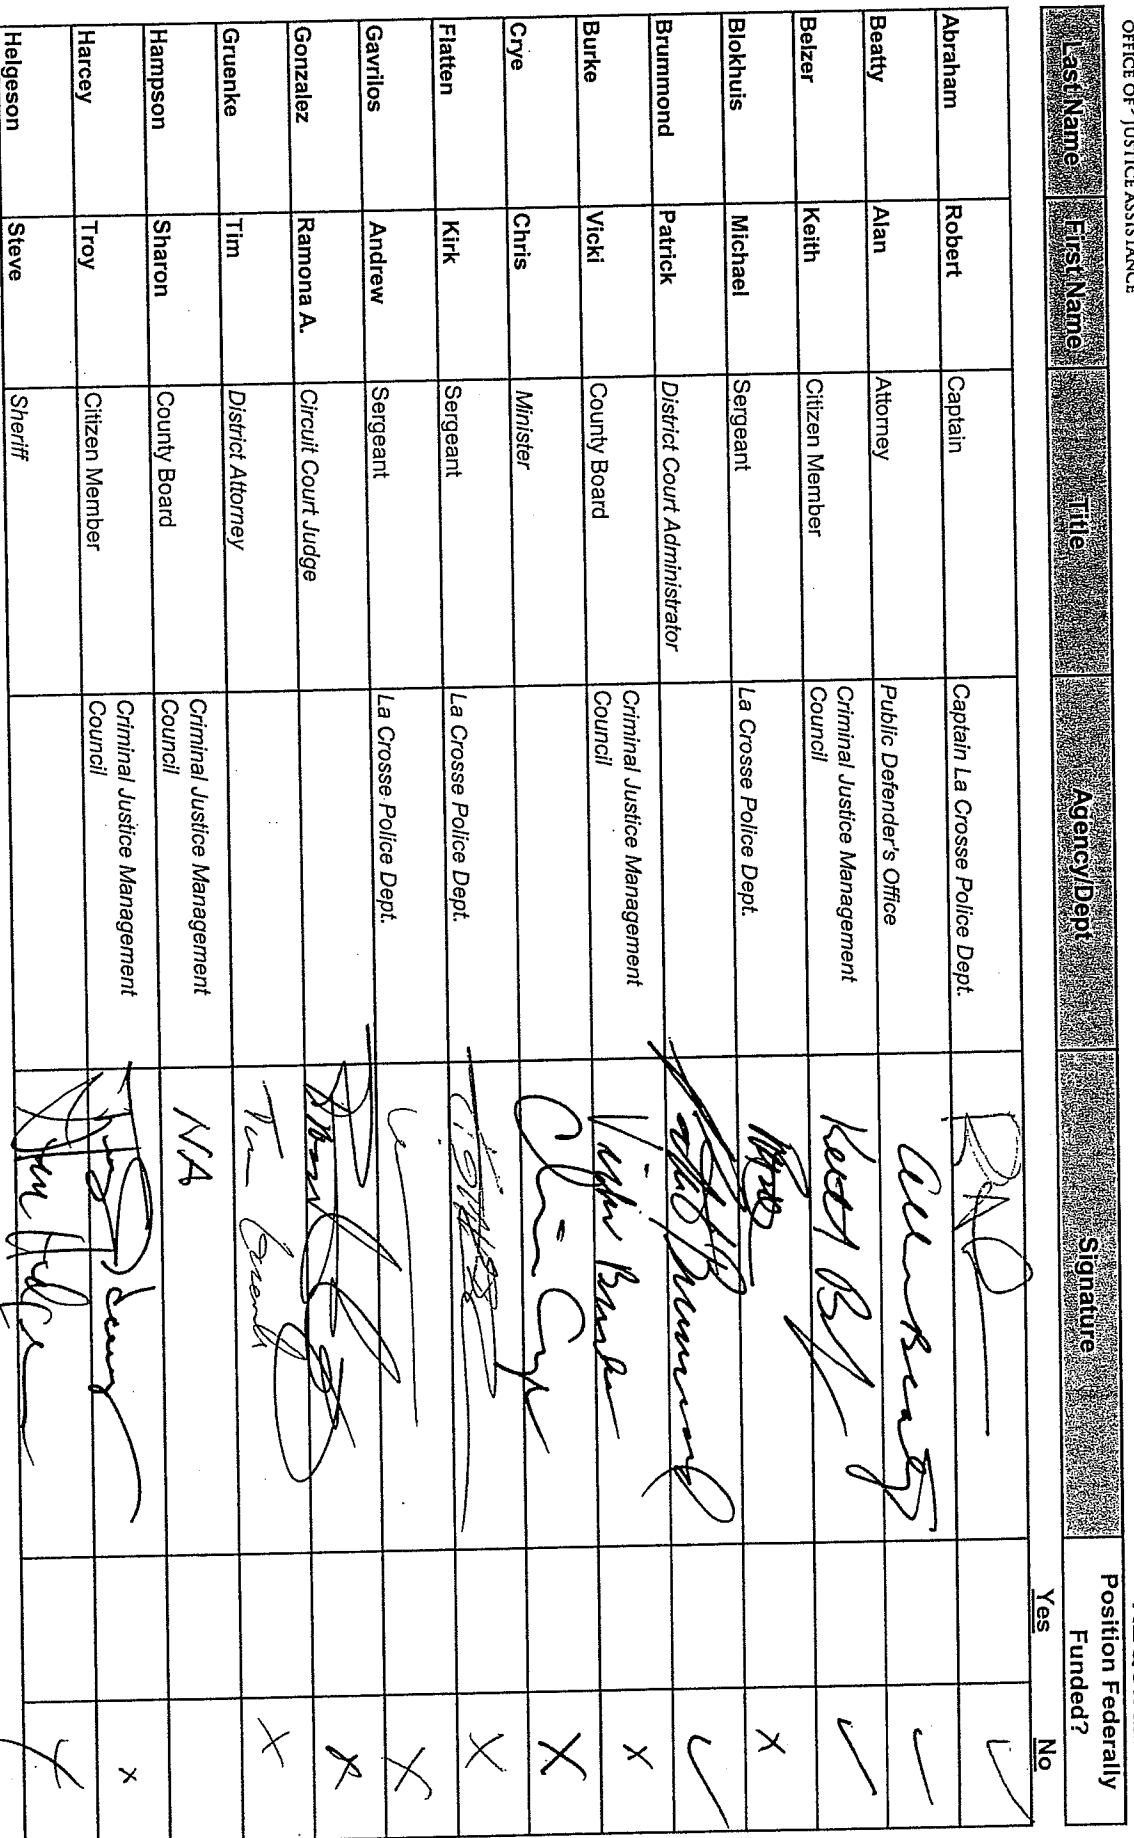 OFFICE OF JUSTICE ASSISTANCE
Last Name First Name Title Agency/Dept Signature Position Federally Funded?
Yes No
Abraham Robert Captain Captain La Crosse Police Dept. ✓
Beatty Alan Attorney Public Defender's Office Alan Beatty ✓
Belzer Keith Citizen Member Criminal Justice Management
Council Keith ✓
Blokhuis Michael Sergeant La Crosse Police Dept. x
Brummond Patrick District Court Administrator Patrick Brummond ✓
Burke Vicki County Board Criminal Justice Management
Council Vicki Burke x
Crye Chris Minister Chris Crye X
Flatten Kirk Sergeant La Crosse Police Dept. X
Gavrilos Andrew Sergeant La Crosse Police Dept. X
Gonzalez Ramona A. Circuit Court Judge X
Gruenke Tim District Attorney Tim Gruenke X
Hampson Sharon County Board Criminal Justice Management
Council NA
Harcey Troy Citizen Member Criminal Justice Management
Council x
Helgeson Steve Sheriff X